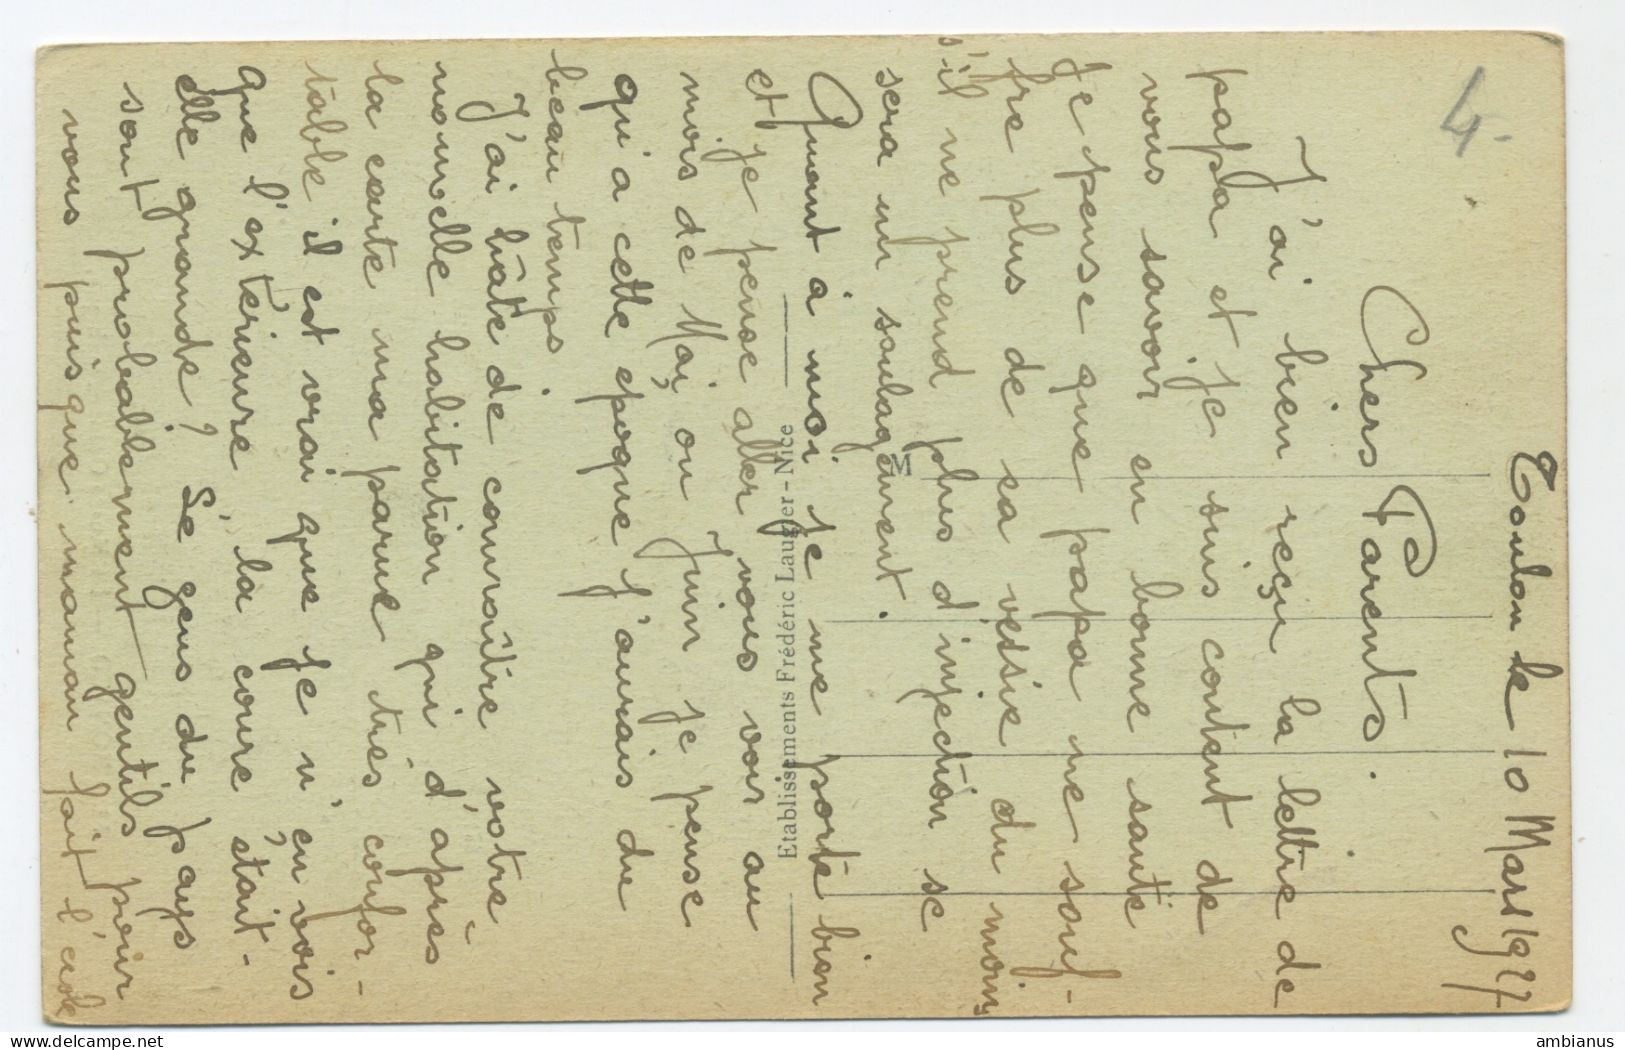 4.
Toulon le 10 Mars 1927
Chers Parents.
J'ai bien reçu la lettre de
papa et je suis content de
vous savoir en bonne santé
Je pense que papa ne souf-
fre plus de sa vessie du moins
s'il ne prend plus d'injection se
sera un soulagement.
Quant à moi je me porte bien
et je pense aller vous voir au
mois de Mai ou Juin je pense
qu'a cette epoque j'aurais du
beau temps.
J'ai hâte de connaître votre
nouvelle habitation qui d'après
la carte ma parue très confor-
table il est vrai que je n'en vois
que l'extérieure, la cour était-
elle grande? Se gens du pays
sont probablement gentils pour
vous puisque maman fait l'école
M
Etablissements Frédéric Laugier - Nice
ambianus
delcampe.net